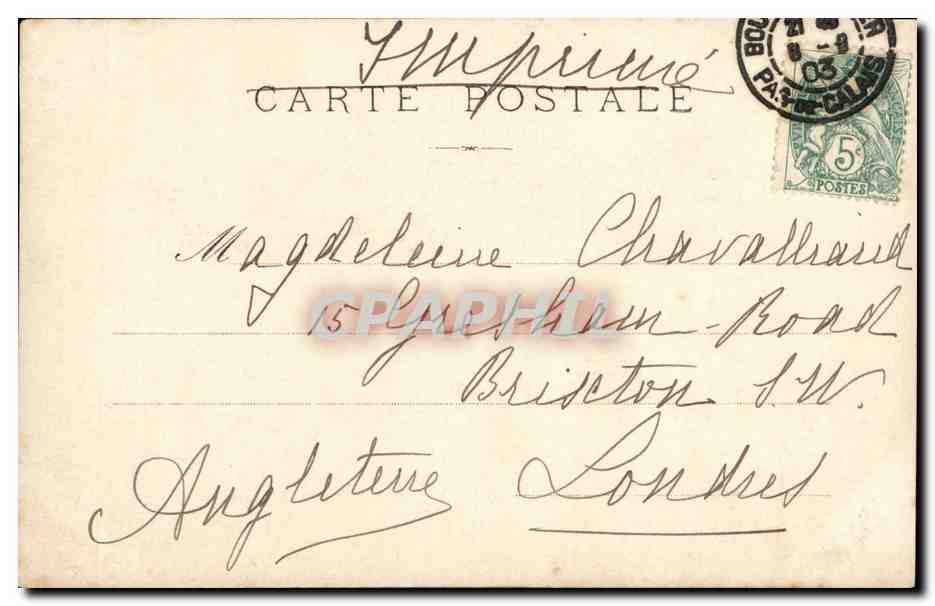 Imprimé
CARTE POSTALE
03
PAS-DE-CALAIS
5c
POSTES
Magdeleine Chavallraud
15 Gresham Road
Brixton S.W.
Angleterre Londres
CPAPHIL